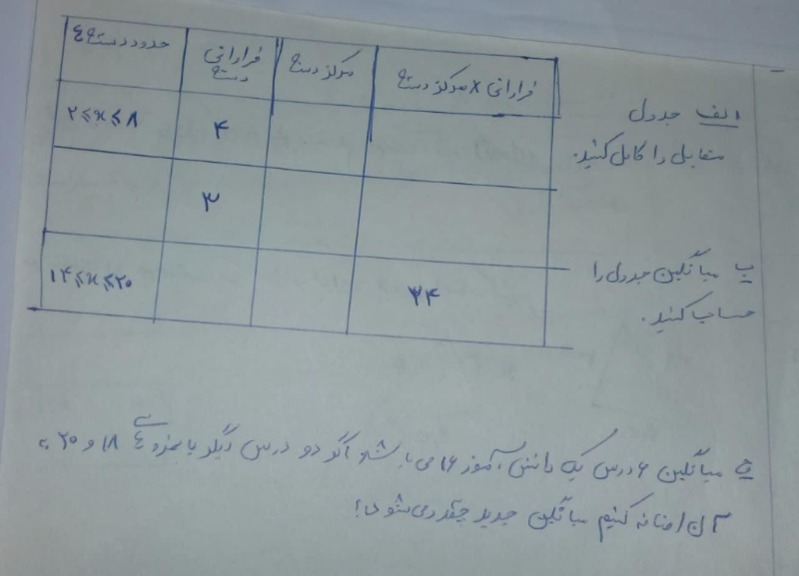 حدود دسته ها فراوانی دسته مرکز دسته فراوانی × مرکز دسته
۲ ⩽ x ⩽ ۸ ۴
۳
۱۴ ⩽ x ⩽ ۲۰ ۳۴
الف جدول
مقابل را کامل کنید.
ب میانگین جدول را
حساب کنید.
ج میانگین ۶ درس یک دانش آموز ۱۶ می باشد اگر دو درس دیگر با نمره های ۱۸ و ۲۰ به
آن اضافه کنیم میانگین جدید چقدر می شود؟